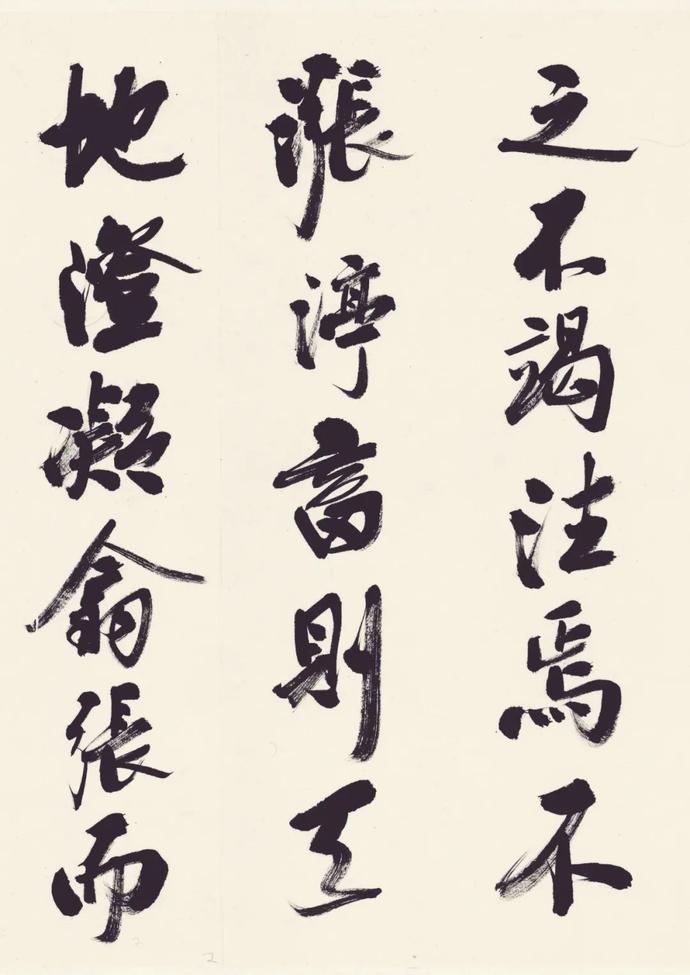 之不竭注焉不
漲渟畜則天
地澄凝翕張而